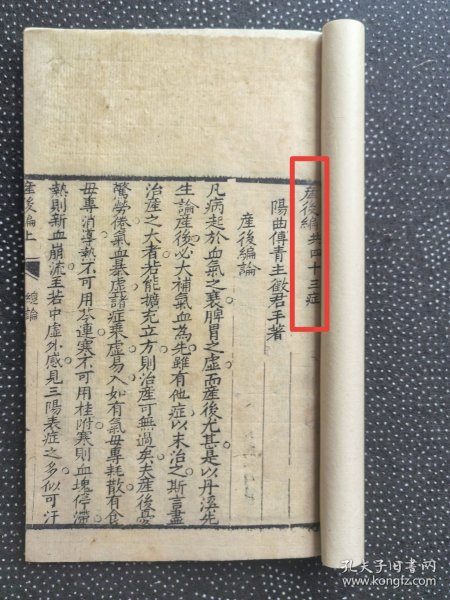 產後編共四十三症
陽曲傅青主徵君手著
產後編論
凡病起於血氣之衰脾胃之虛而產後尤甚是以丹溪先
生論產後必大補氣血為先雖有他症以末治之斯言盡
治產之大者若能擴充立方則治產可無過矣夫產後憂
驚勞倦氣血暴虛諸症乘虛易入如有氣毋專耗散有食
毋專消導熱不可用芩連寒不可用桂附寒則血塊停滯
熱則新血崩流至若中虛外感見三陽表症之多似可汗
產後編上 總論
孔夫子旧书网
www.kongfz.com